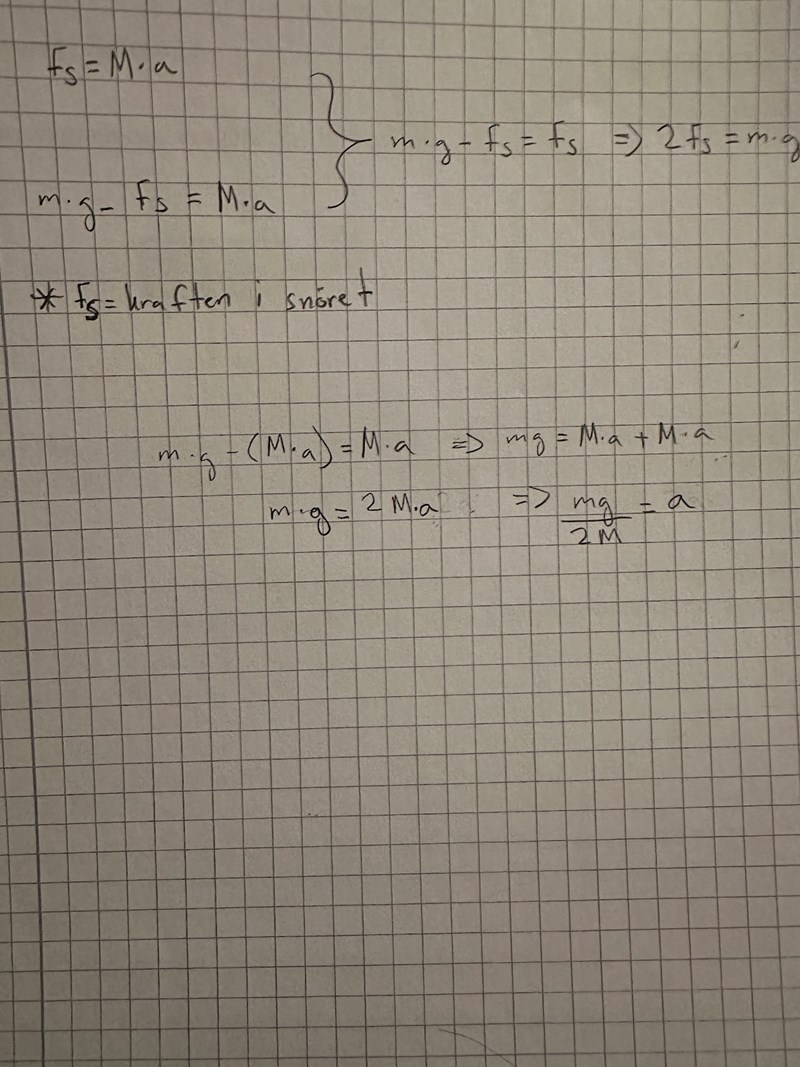 fs = M·a
m·g - fs = fs => 2fs = m·g
m·g - fs = M·a
* fs = kraften i snöret
m·g - (M·a) = M·a => mg = M·a + M·a
m·g = 2M·a => mg/2M = a